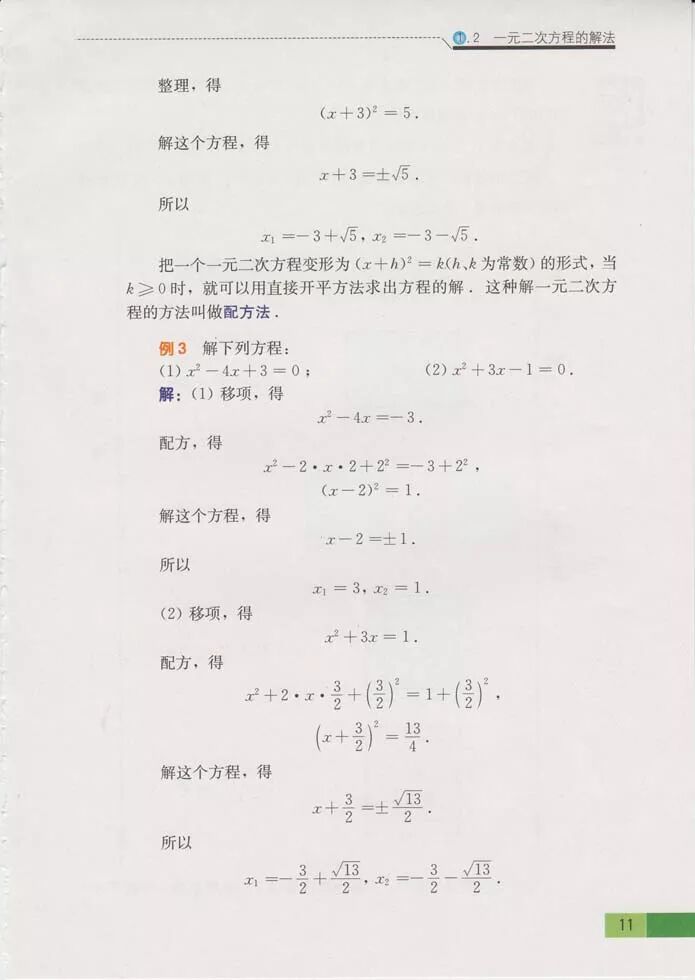 1.2 一元二次方程的解法
整理，得
(x＋3)²＝5．
解这个方程，得
x＋3＝±√5．
所以
x₁＝－3＋√5，x₂＝－3－√5．
把一个一元二次方程变形为(x＋h)²＝k(h、k为常数)的形式，当
k≥0时，就可以用直接开平方法求出方程的解．这种解一元二次方
程的方法叫做配方法．
例3 解下列方程：
(1) x²－4x＋3＝0； (2) x²＋3x－1＝0．
解：(1) 移项，得
x²－4x＝－3．
配方，得
x²－2·x·2＋2²＝－3＋2²，
(x－2)²＝1．
解这个方程，得
x－2＝±1．
所以
x₁＝3，x₂＝1．
(2) 移项，得
x²＋3x＝1．
配方，得
x²＋2·x·3/2＋(3/2)²＝1＋(3/2)²，
(x＋3/2)²＝13/4．
解这个方程，得
x＋3/2＝±√13/2．
所以
x₁＝－3/2＋√13/2，x₂＝－3/2－√13/2．
11